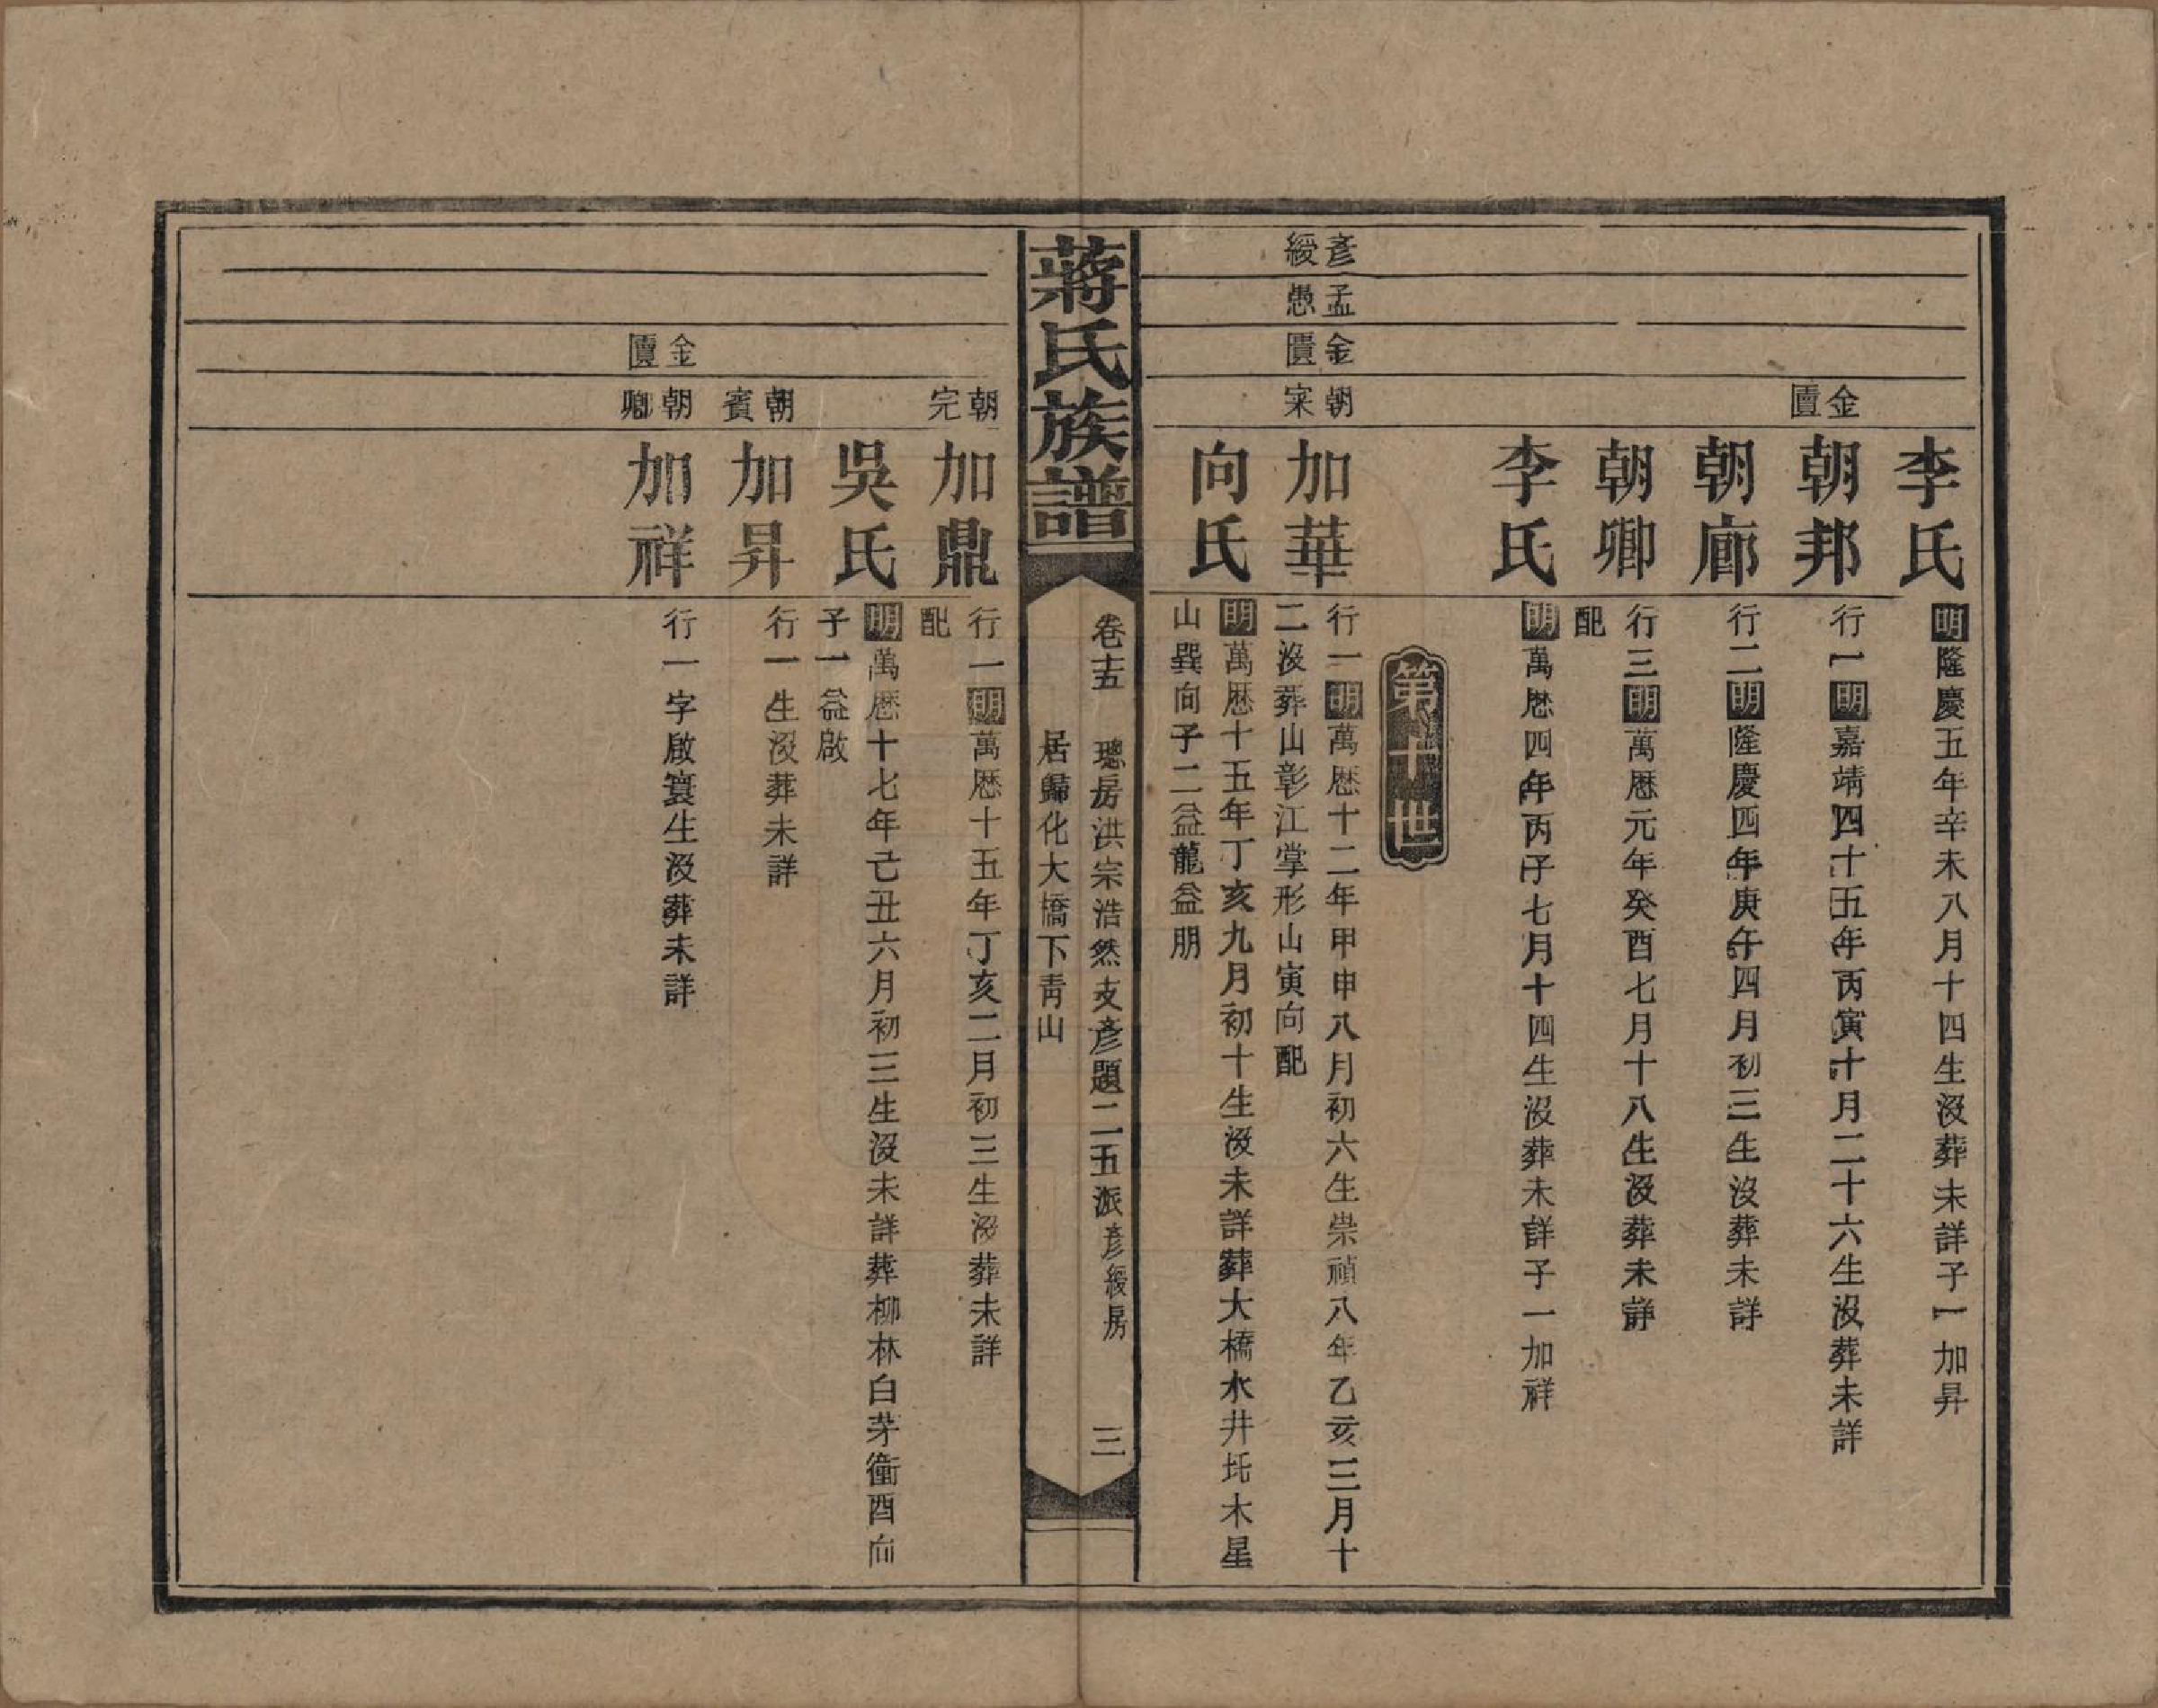 李氏
明隆慶五年辛未八月十四生沒葬未詳子一加昇
金匱
朝邦
行一明嘉靖四十五年丙寅十月二十六生沒葬未詳
朝廊
行二明隆慶四年庚午四月初三生沒葬未詳
朝卿
行三明萬歷元年癸酉七月十八生沒葬未詳
配
李氏
明萬歷四年丙子七月十四生沒葬未詳子一加祥
第十世
彥綬
孟愚
金匱
朝寀
加華
行一明萬歷十二年甲申八月初六生崇禎八年乙亥三月十
二沒葬山彰江掌形山寅向配
向氏
明萬歷十五年丁亥九月初十生沒未詳葬大橋水井坨木星
山巽向子二益龍益朋
蔣氏族譜
卷十五 璁房洪宗浩然支彥題二五派彥綬房
居歸化大橋下青山
三
朝完
加鼎
行一明萬歷十五年丁亥二月初三生沒葬未詳
配
吳氏
明萬歷十七年己丑六月初三生沒未詳葬柳林白茅衝酉向
子一益啟
朝賓
加昇
行一生沒葬未詳
金匱
朝卿
加祥
行一字啟寰生沒葬未詳